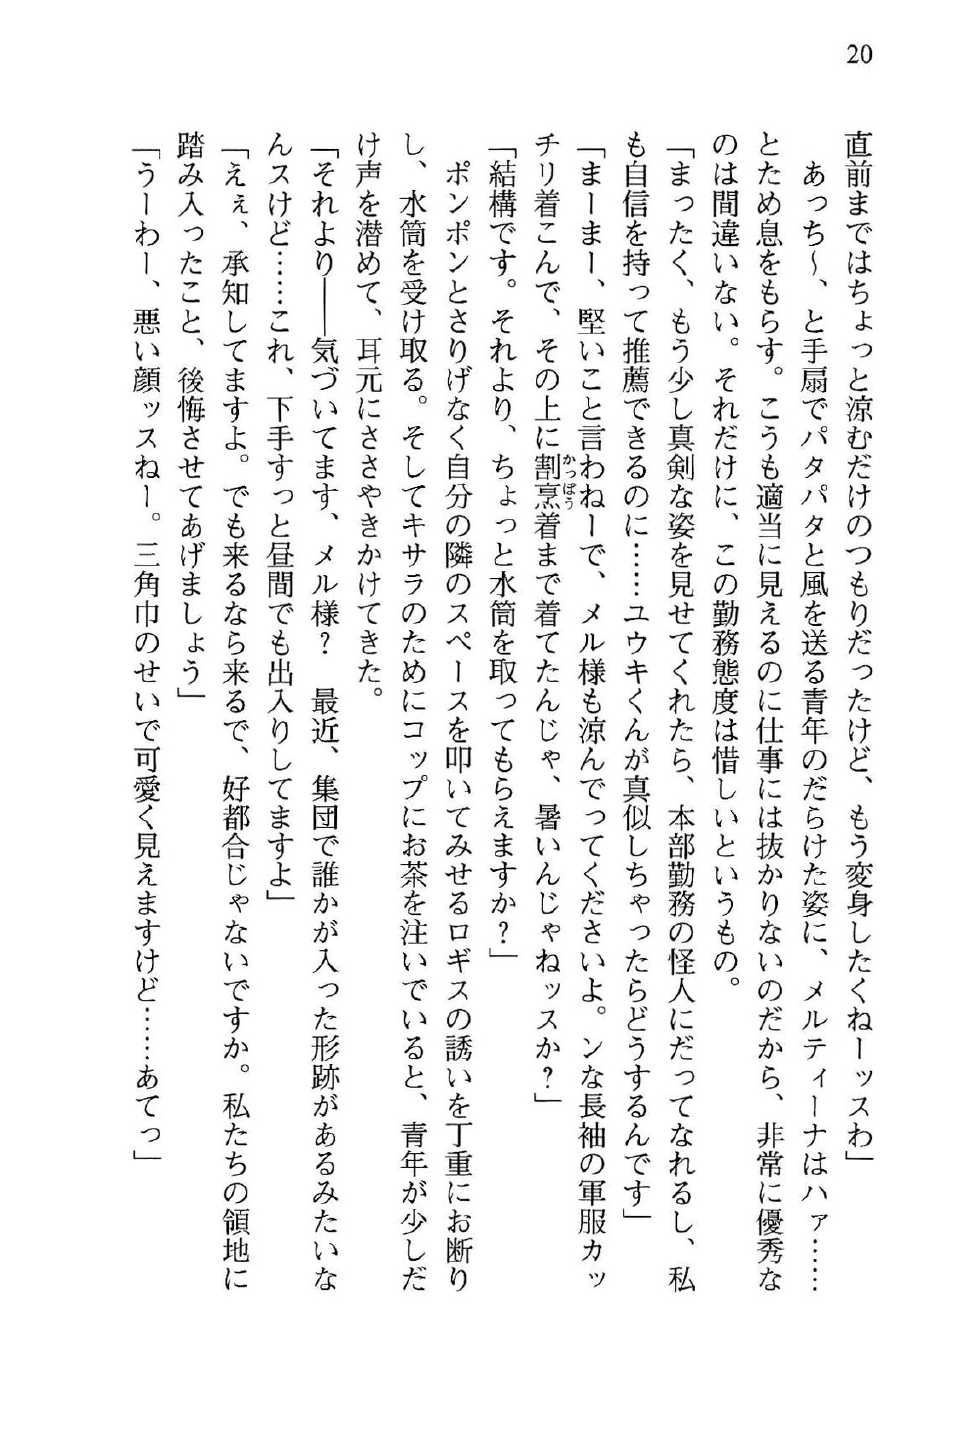 20
直前まではちょっと涼むだけのつもりだったけど、もう変身したくねーッスわ」
　あっち～、と手扇でパタパタと風を送る青年のだらけた姿に、メルティーナはハァ……
とため息をもらす。こうも適当に見えるのに仕事には抜かりないのだから、非常に優秀な
のは間違いない。それだけに、この勤務態度は惜しいというもの。
「まったく、もう少し真剣な姿を見せてくれたら、本部勤務の怪人にだってなれるし、私
も自信を持って推薦できるのに……ユウキくんが真似しちゃったらどうするんです」
「まーまー、堅いこと言わねーで、メル様も涼んでってくださいよ。ンな長袖の軍服カッ
チリ着こんで、その上に割烹着まで着てたんじゃ、暑いんじゃねッスか？」
かっぽう
「結構です。それより、ちょっと水筒を取ってもらえますか？」
　ポンポンとさりげなく自分の隣のスペースを叩いてみせるロギスの誘いを丁重にお断り
し、水筒を受け取る。そしてキサラのためにコップにお茶を注いでいると、青年が少しだ
け声を潜めて、耳元にささやきかけてきた。
「それより――気づいてます、メル様？　最近、集団で誰かが入った形跡があるみたいな
んスけど……これ、下手すっと昼間でも出入りしてますよ」
「えぇ、承知してますよ。でも来るなら来るで、好都合じゃないですか。私たちの領地に
踏み入ったこと、後悔させてあげましょう」
「うーわー、悪い顔ッスねー。三角巾のせいで可愛く見えますけど……あてっ」